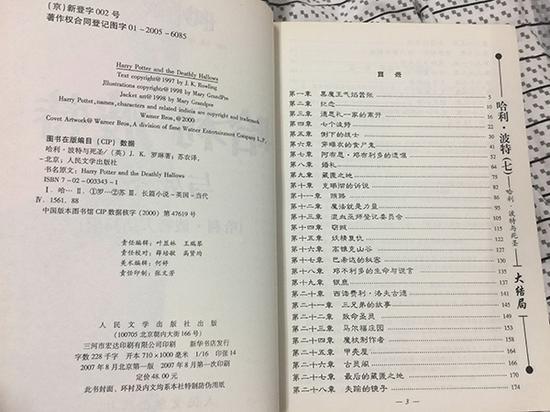 (京)新登字 002 号
著作权合同登记图字 01-2005-6085
Harry Potter and the Deathly Hallows
Text copyright@ 1997 by J. K. Rowling
Illustrations copyright@ 1998 by Mary GrandPre
Jacket art@ 1998 by Mary Grandpre
Harry Potter, names, characters and related indicia are copyright and trademark
Warner Bros., @ 2000
Cover Artwork@ Warner Bros., A division of Time Warner Entertainment Company L. P.
图书在版编目(CIP)数据
哈利·波特与死圣/(英)J. K. 罗琳著;苏农译,
-北京:人民文学出版社
书名原文:Harry Potter and the Deathly Hallows
ISBN 7-02-003343-1
Ⅰ·哈-Ⅱ·①罗-②苏 Ⅲ·长篇小说-英国-当代
Ⅳ. 1561, 88
中国版本图书馆 CIP 数据核字(2000)第 47619 号
责任编辑:叶显林 王瑞琴
责任校对:薛培敏 高贤均
美术编辑:何婷
责任印制:张文芳
人民文学出版社出版
(100705 北京朝内大街 166 号)
三河市宏达印刷有限公司印刷 新华书店发行
字数 228 千字 开本 710×1000 毫米 1/16 印张 14
2007 年 8 月北京第一版 2007 年 8 月第一次印刷
定价 48.00 元
此书封面、环村及内文均系本社特制防伪用纸
目录
第一章 黑魔王气焰嚣张 5
第二章 纪念
第三章 德思礼一家的离开
第四章 七个波特
第五章 倒下的战士
第六章 穿睡衣的食尸鬼
第七章 阿布思·邓布利多的遗嘱
第八章 婚礼
第九章 藏匿之地
第十章 克利切的诉说
第十一章 贿赂
第十二章 魔法就是力量
第十三章 混血巫师登记委员会
第十四章 窃贼
第十五章 妖精复仇
第十六章 高锥克山谷
第十七章 巴希达的秘密
第十八章 邓不利多的生命与谎言
第十九章 银鹿
第二十章 西诺费利·洛夫古德
第二十一章 三兄弟的故事
第二十二章 致命圣灵
第二十三章 马尔福庄园
第二十四章 魔杖制作者
第二十五章 甲壳屋
第二十六章 古灵阁
第二十七章 最后的藏匿之地 170
第二十八章 失踪的镜子 174
- 3 -
哈利·波特(七)
——哈利·波特与死圣
大结局